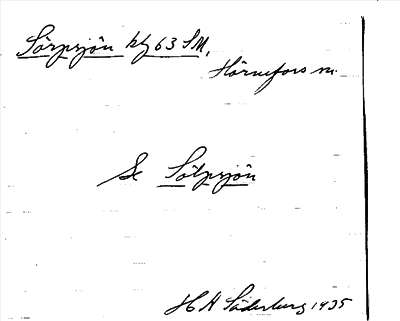 Sörpsjön bly 63 SM,
Hörnefors m.
Se Sölpsjön
H H Söderberg 1935